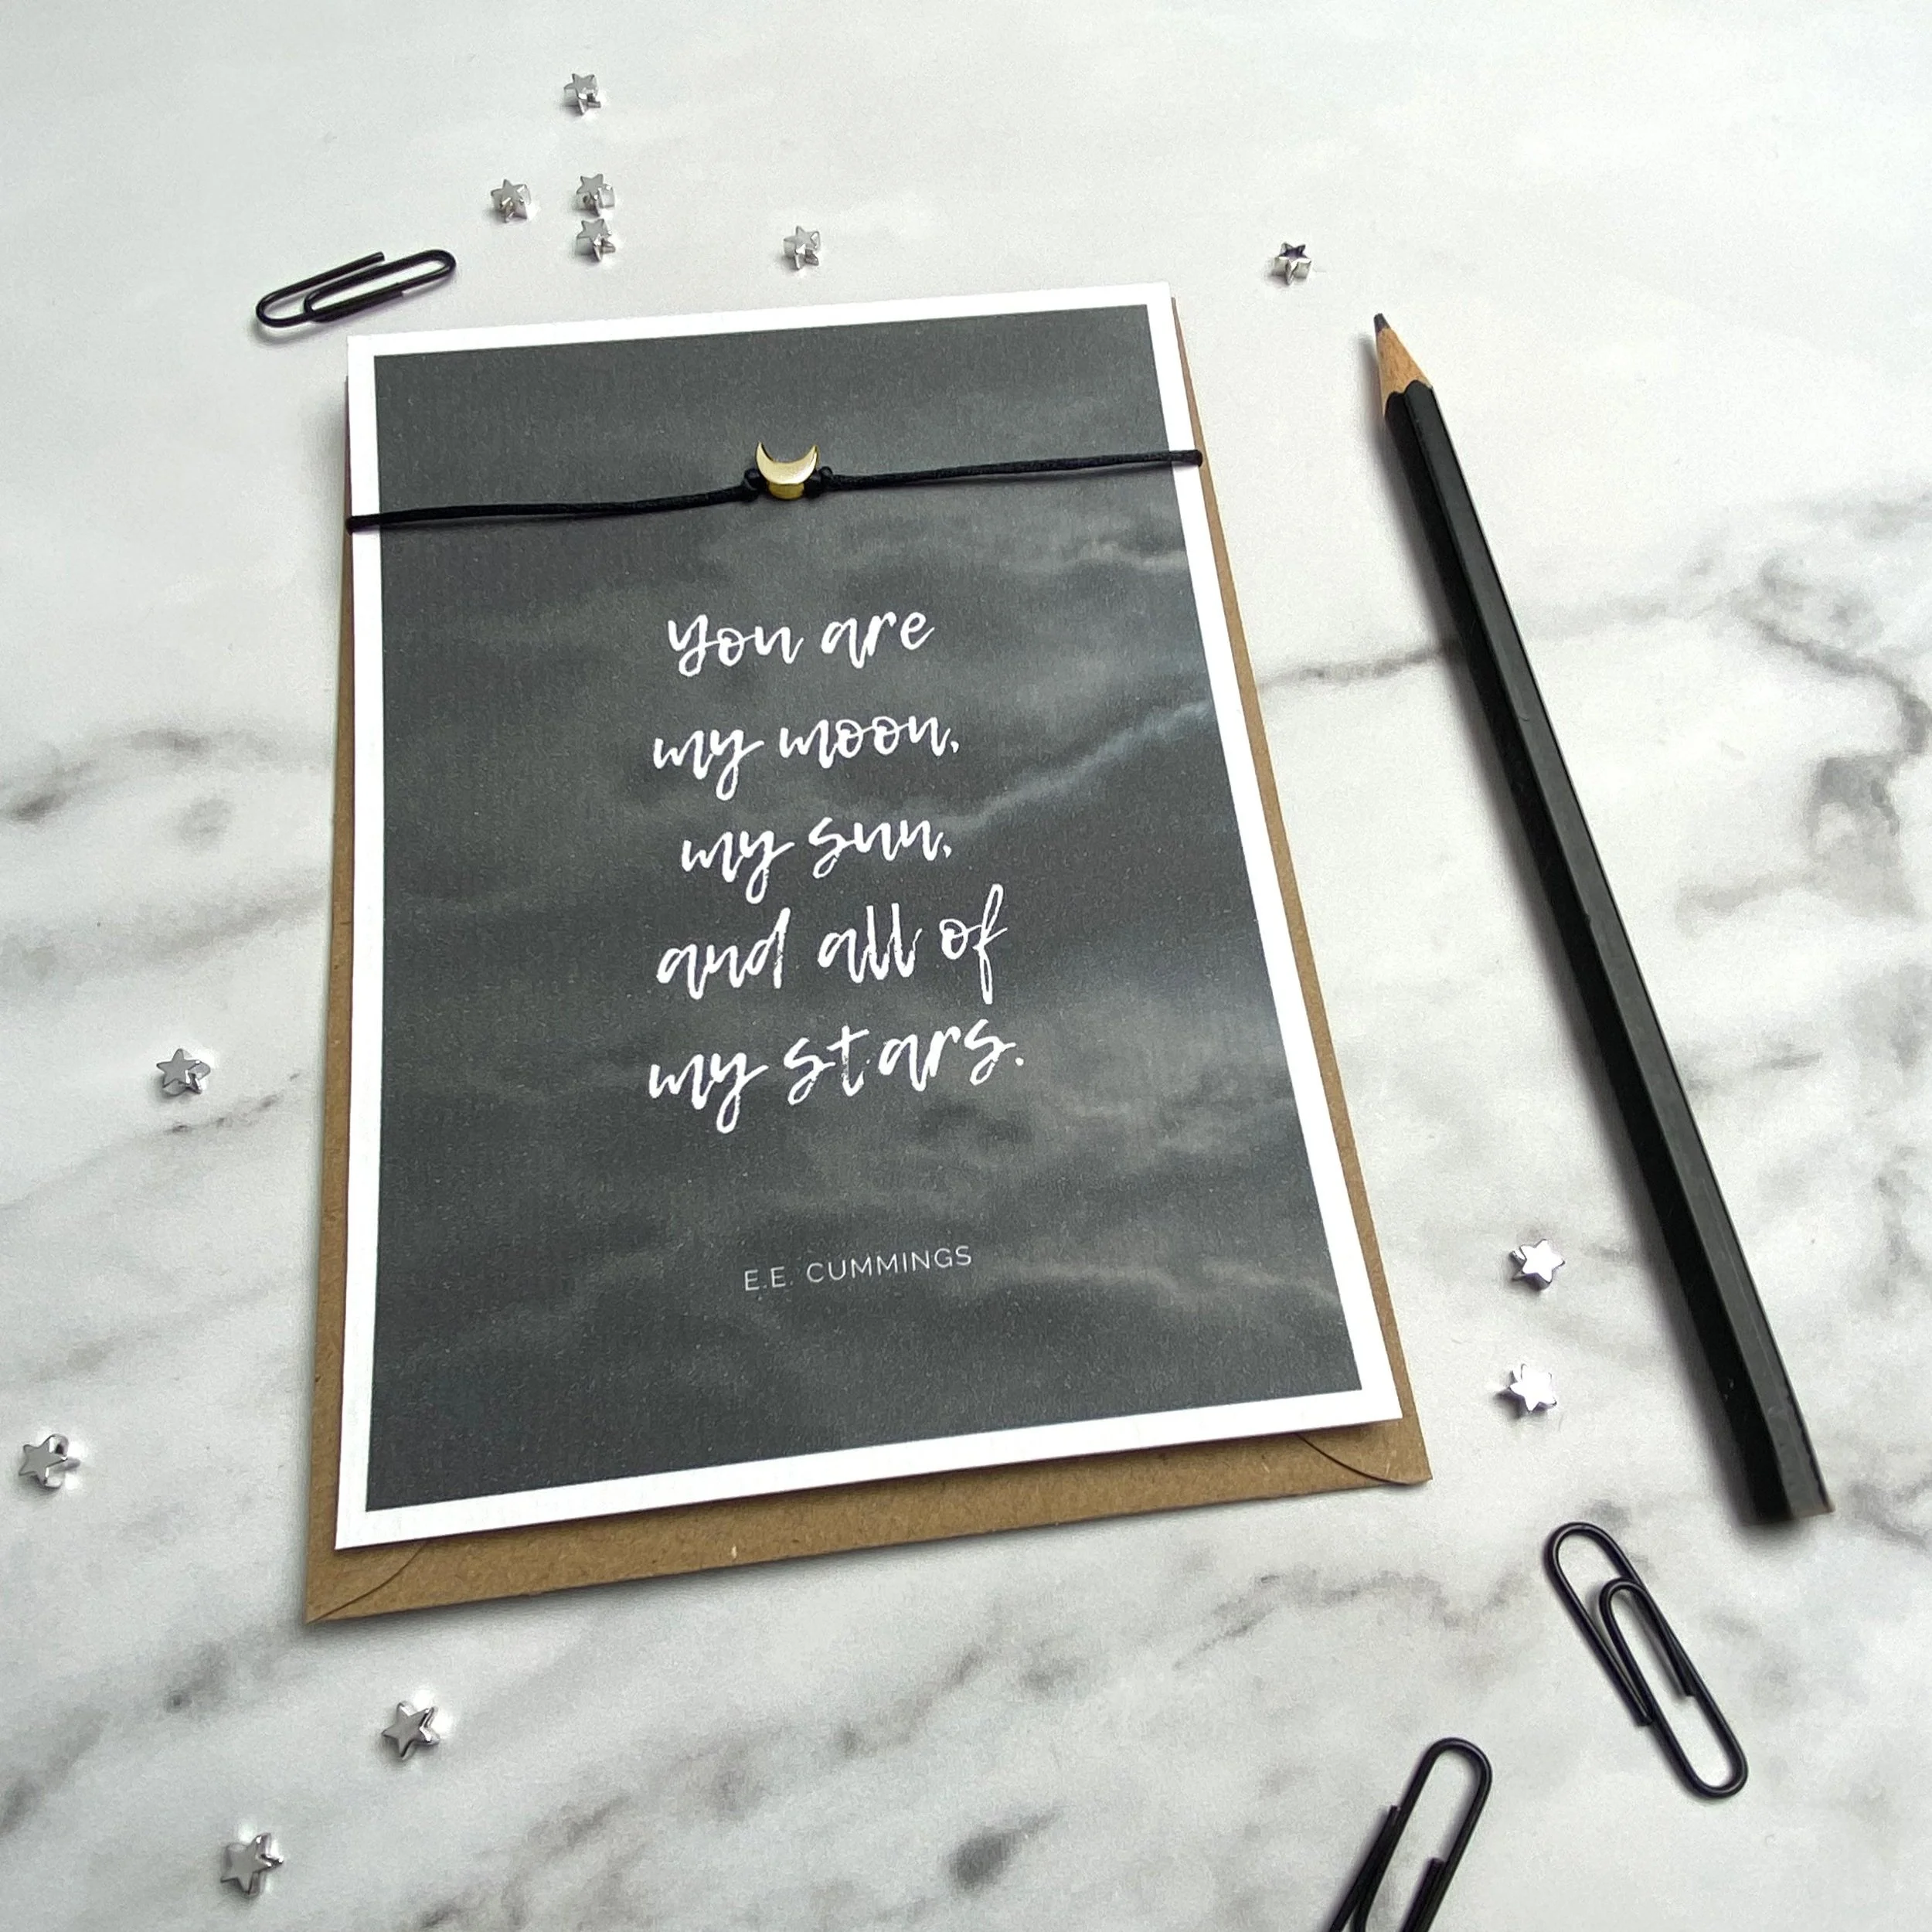 you are
my moon,
my sun,
and all of
my stars.
E.E. CUMMINGS